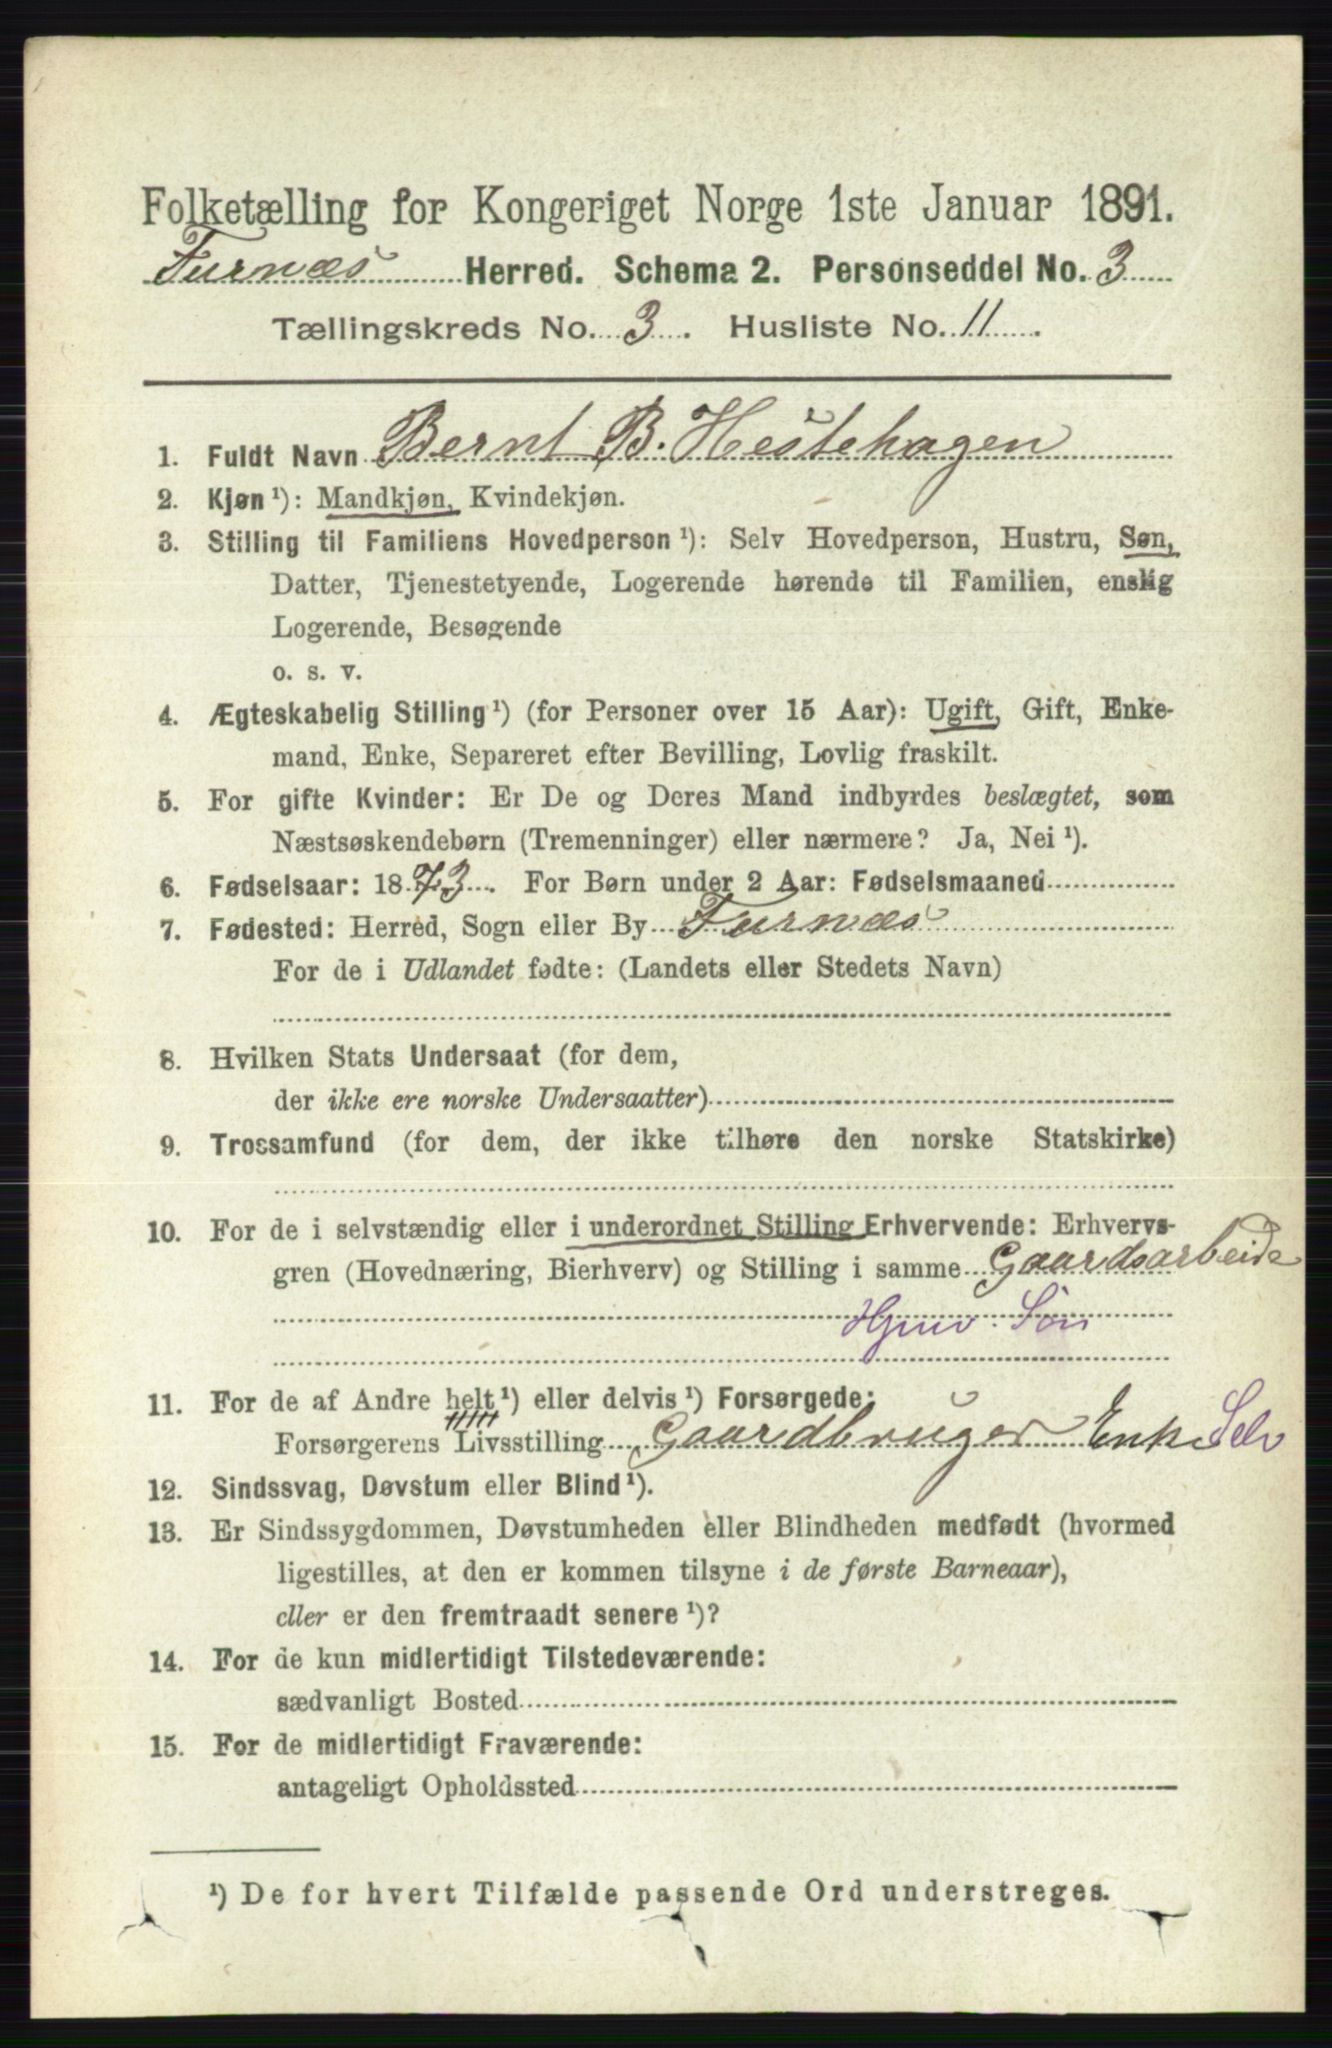 Folketælling for Kongeriget Norge 1ste Januar 1891.
Furnæs Herred. Schema 2. Personseddel No. 3
Tællingskreds No. 3. Husliste No. 11.
1. Fuldt Navn Bernt B. Hestehagen
2. Kjøn ¹): Mandkjøn, Kvindekjøn.
3. Stilling til Familiens Hovedperson ¹): Selv Hovedperson, Hustru, Søn,
Datter, Tjenestetyende, Logerende hørende til Familien, enslig
Logerende, Besøgende
o. s. v.
4. Ægteskabelig Stilling ¹) (for Personer over 15 Aar): Ugift, Gift, Enke-
mand, Enke, Separeret efter Bevilling, Lovlig fraskilt.
5. For gifte Kvinder: Er De og Deres Mand indbyrdes beslægtet, som
Næstsøskendebørn (Tremenninger) eller nærmere? Ja, Nei ¹).
6. Fødselsaar: 1873. For Børn under 2 Aar: Fødselsmaaned
7. Fødested: Herred, Sogn eller By Furnæs
For de i Udlandet fødte: (Landets eller Stedets Navn)
8. Hvilken Stats Undersaat (for dem,
der ikke ere norske Undersaatter)
9. Trossamfund (for dem, der ikke tilhøre den norske Statskirke)
10. For de i selvstændig eller i underordnet Stilling Erhvervende: Erhvervs-
gren (Hovednæring, Bierhverv) og Stilling i samme Gaardsarbeide
Hjmv. Søn
11. For de af Andre helt ¹) eller delvis ¹) Forsørgede:
Forsørgerens Livsstilling Gaardbruger Enk Selv
12. Sindssvag, Døvstum eller Blind ¹).
13. Er Sindssygdommen, Døvstumheden eller Blindheden medfødt (hvormed
ligestilles, at den er kommen tilsyne i de første Barneaar),
eller er den fremtraadt senere ¹)?
14. For de kun midlertidigt Tilstedeværende:
sædvanligt Bosted
15. For de midlertidigt Fraværende:
antageligt Opholdssted
¹) De for hvert Tilfælde passende Ord understreges.